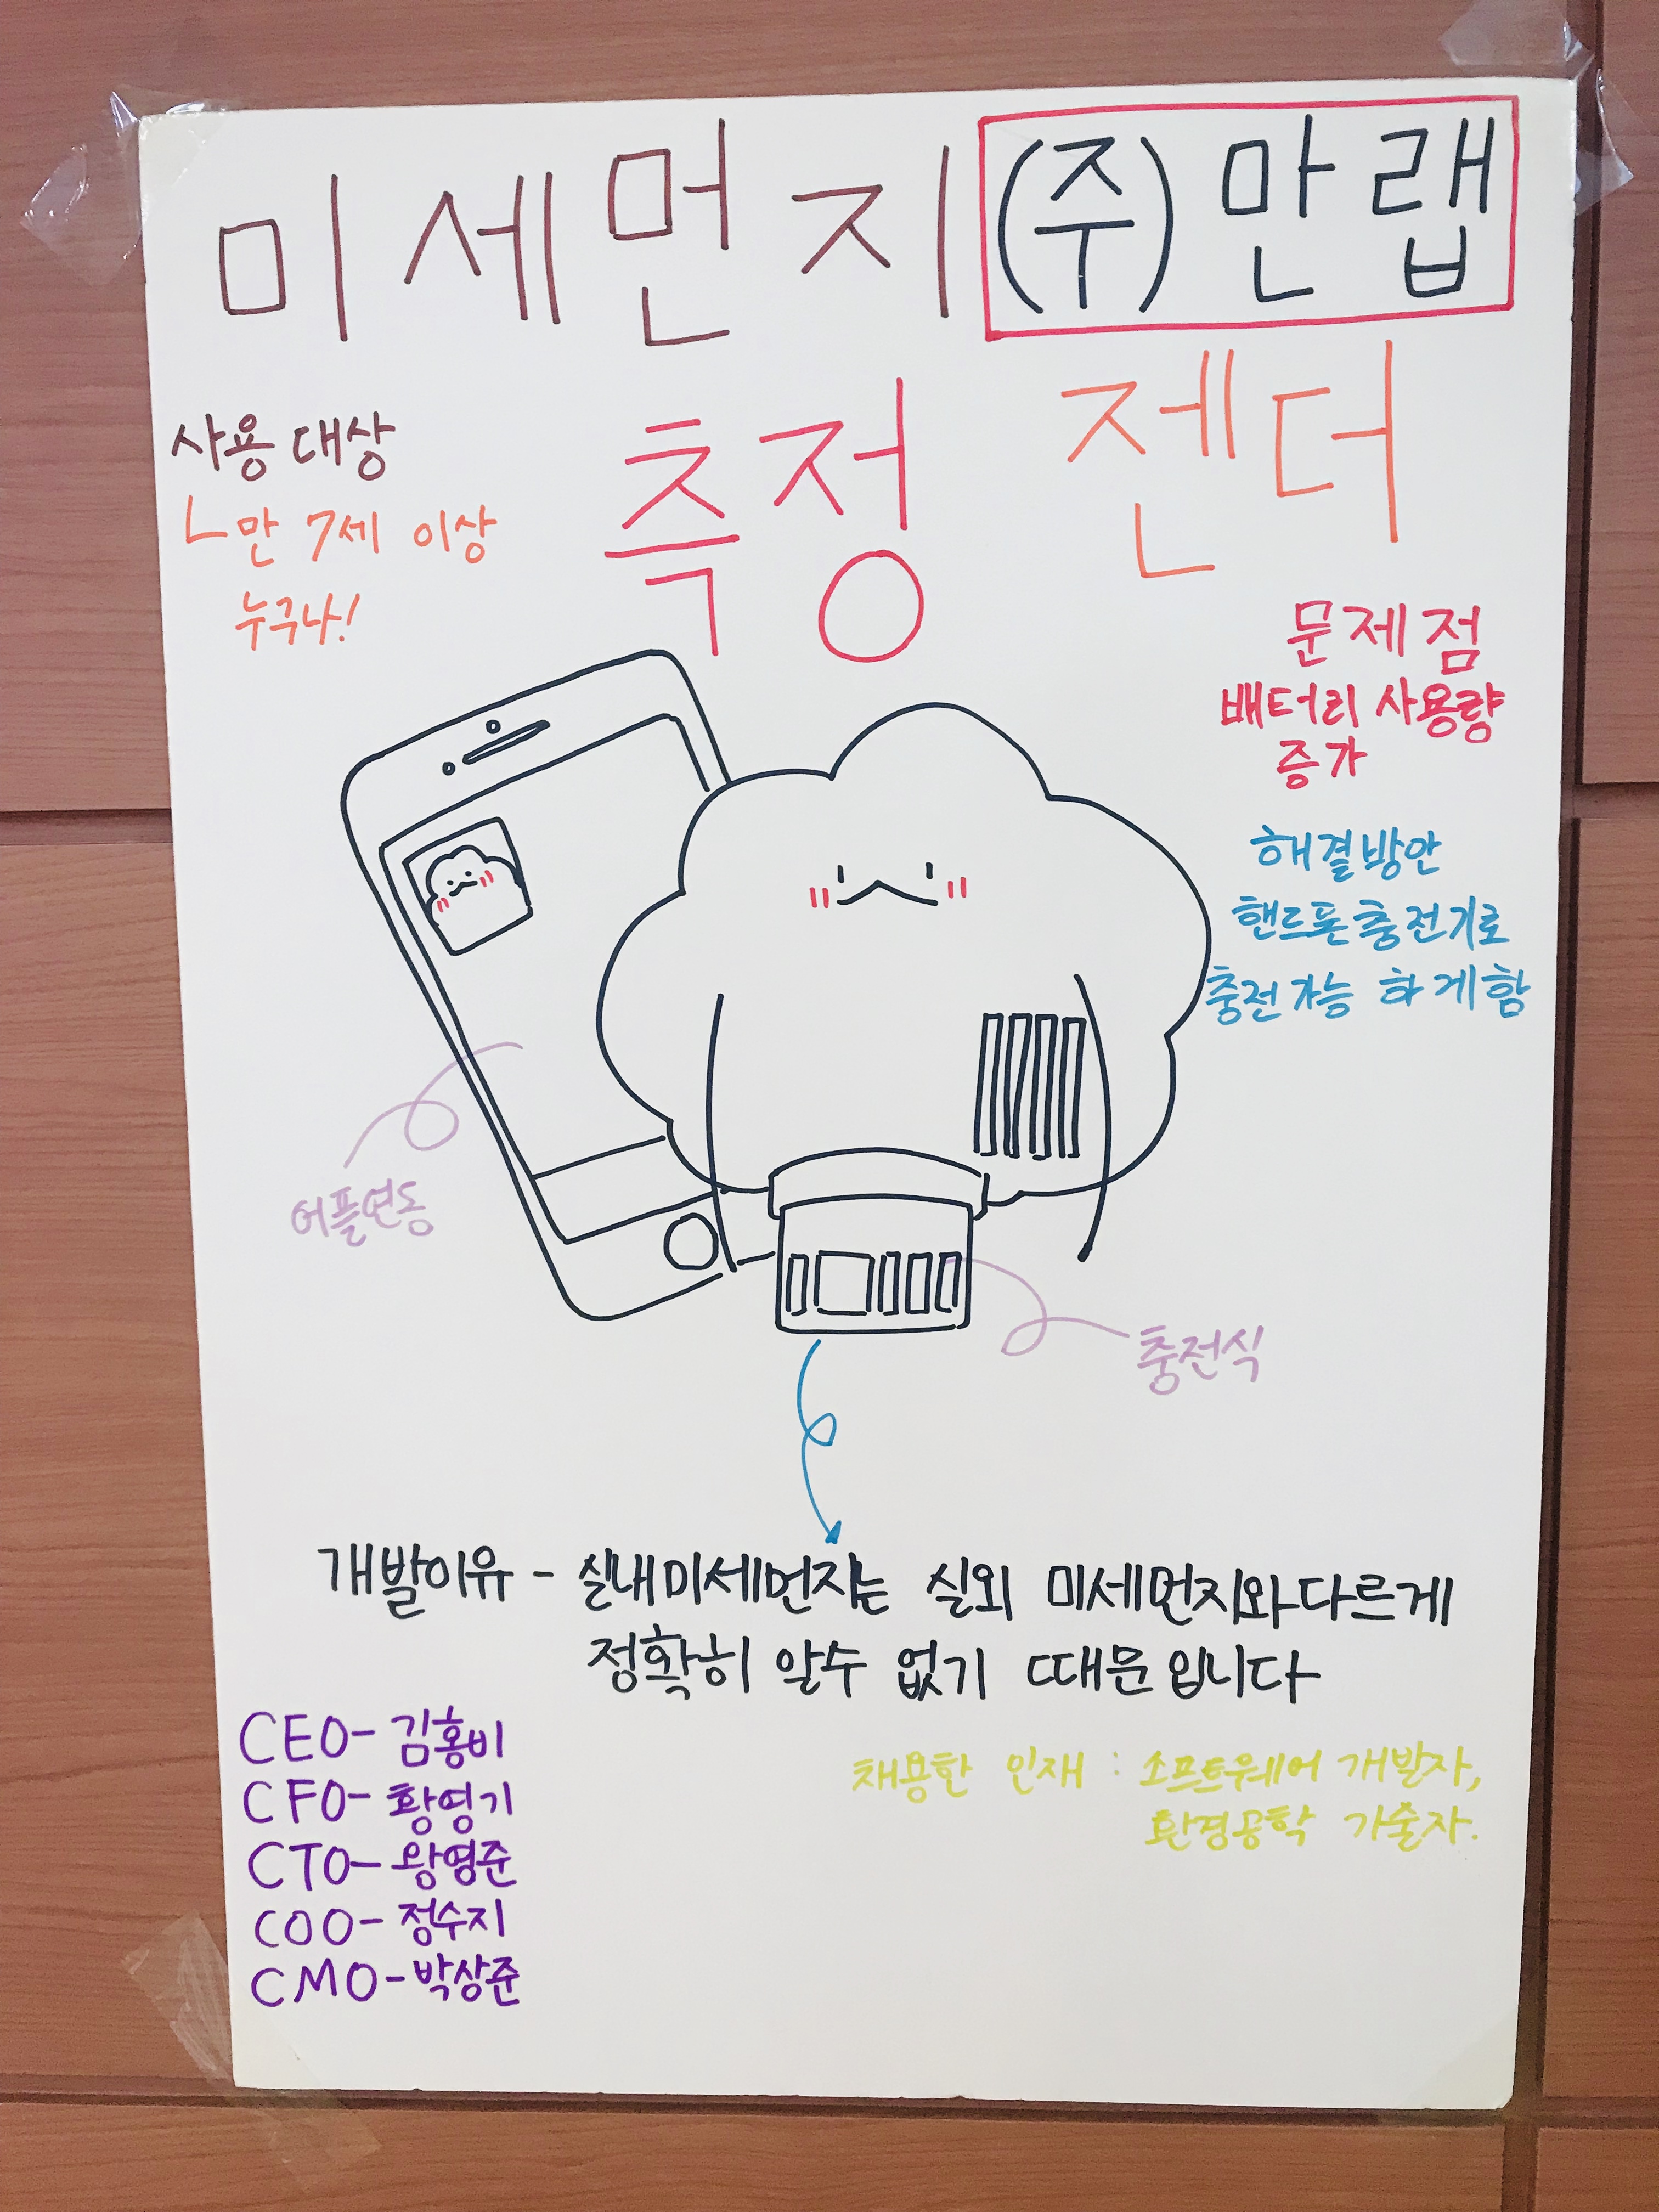 미세먼지 (주)만랩
측정 젠더
사용 대상
ㄴ만 7세 이상
누구나!
문제점
배터리 사용량
증가
해결방안
핸드폰충전기로
충전가능 하게함
어플연동
충전식
개발이유 - 실내미세먼지는 실외 미세먼지와다르게
정확히 알수 없기 때문입니다
CEO-김홍비
CFO-황영기
CTO-왕영준
COO-정수지
CMO-박상준
채용한 인재 : 소프트웨어 개발자,
환경공학 기술자.